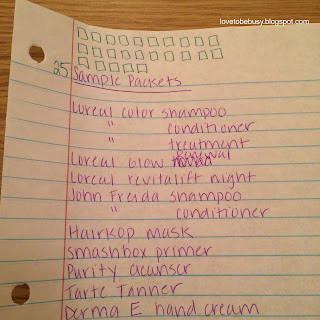 lovetobebusy.blogspot.com
25 Sample Packets
Loreal color shampoo
" conditioner
" treatment
renewal
Loreal blow
Loreal revitalift night
John Freida shampoo
" conditioner
Hairkop mask
smashbox primer
Purity
Tarte Tanner
Derma E hand cream